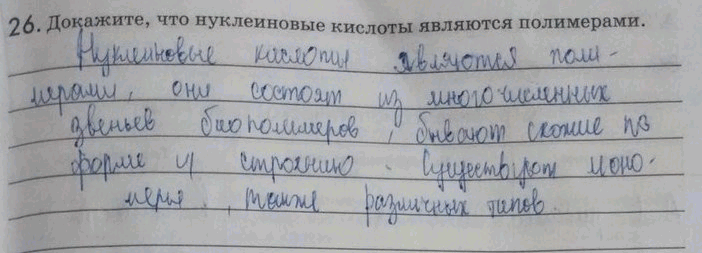 26. Докажите, что нуклеиновые кислоты являются полимерами.
Нуклеиновые кислоты являются поли-
мерами, они состоят из многочисленных
звеньев биополимеров, бывают схожие по
форме и строению. Существуют моно-
меры, также различных типов.